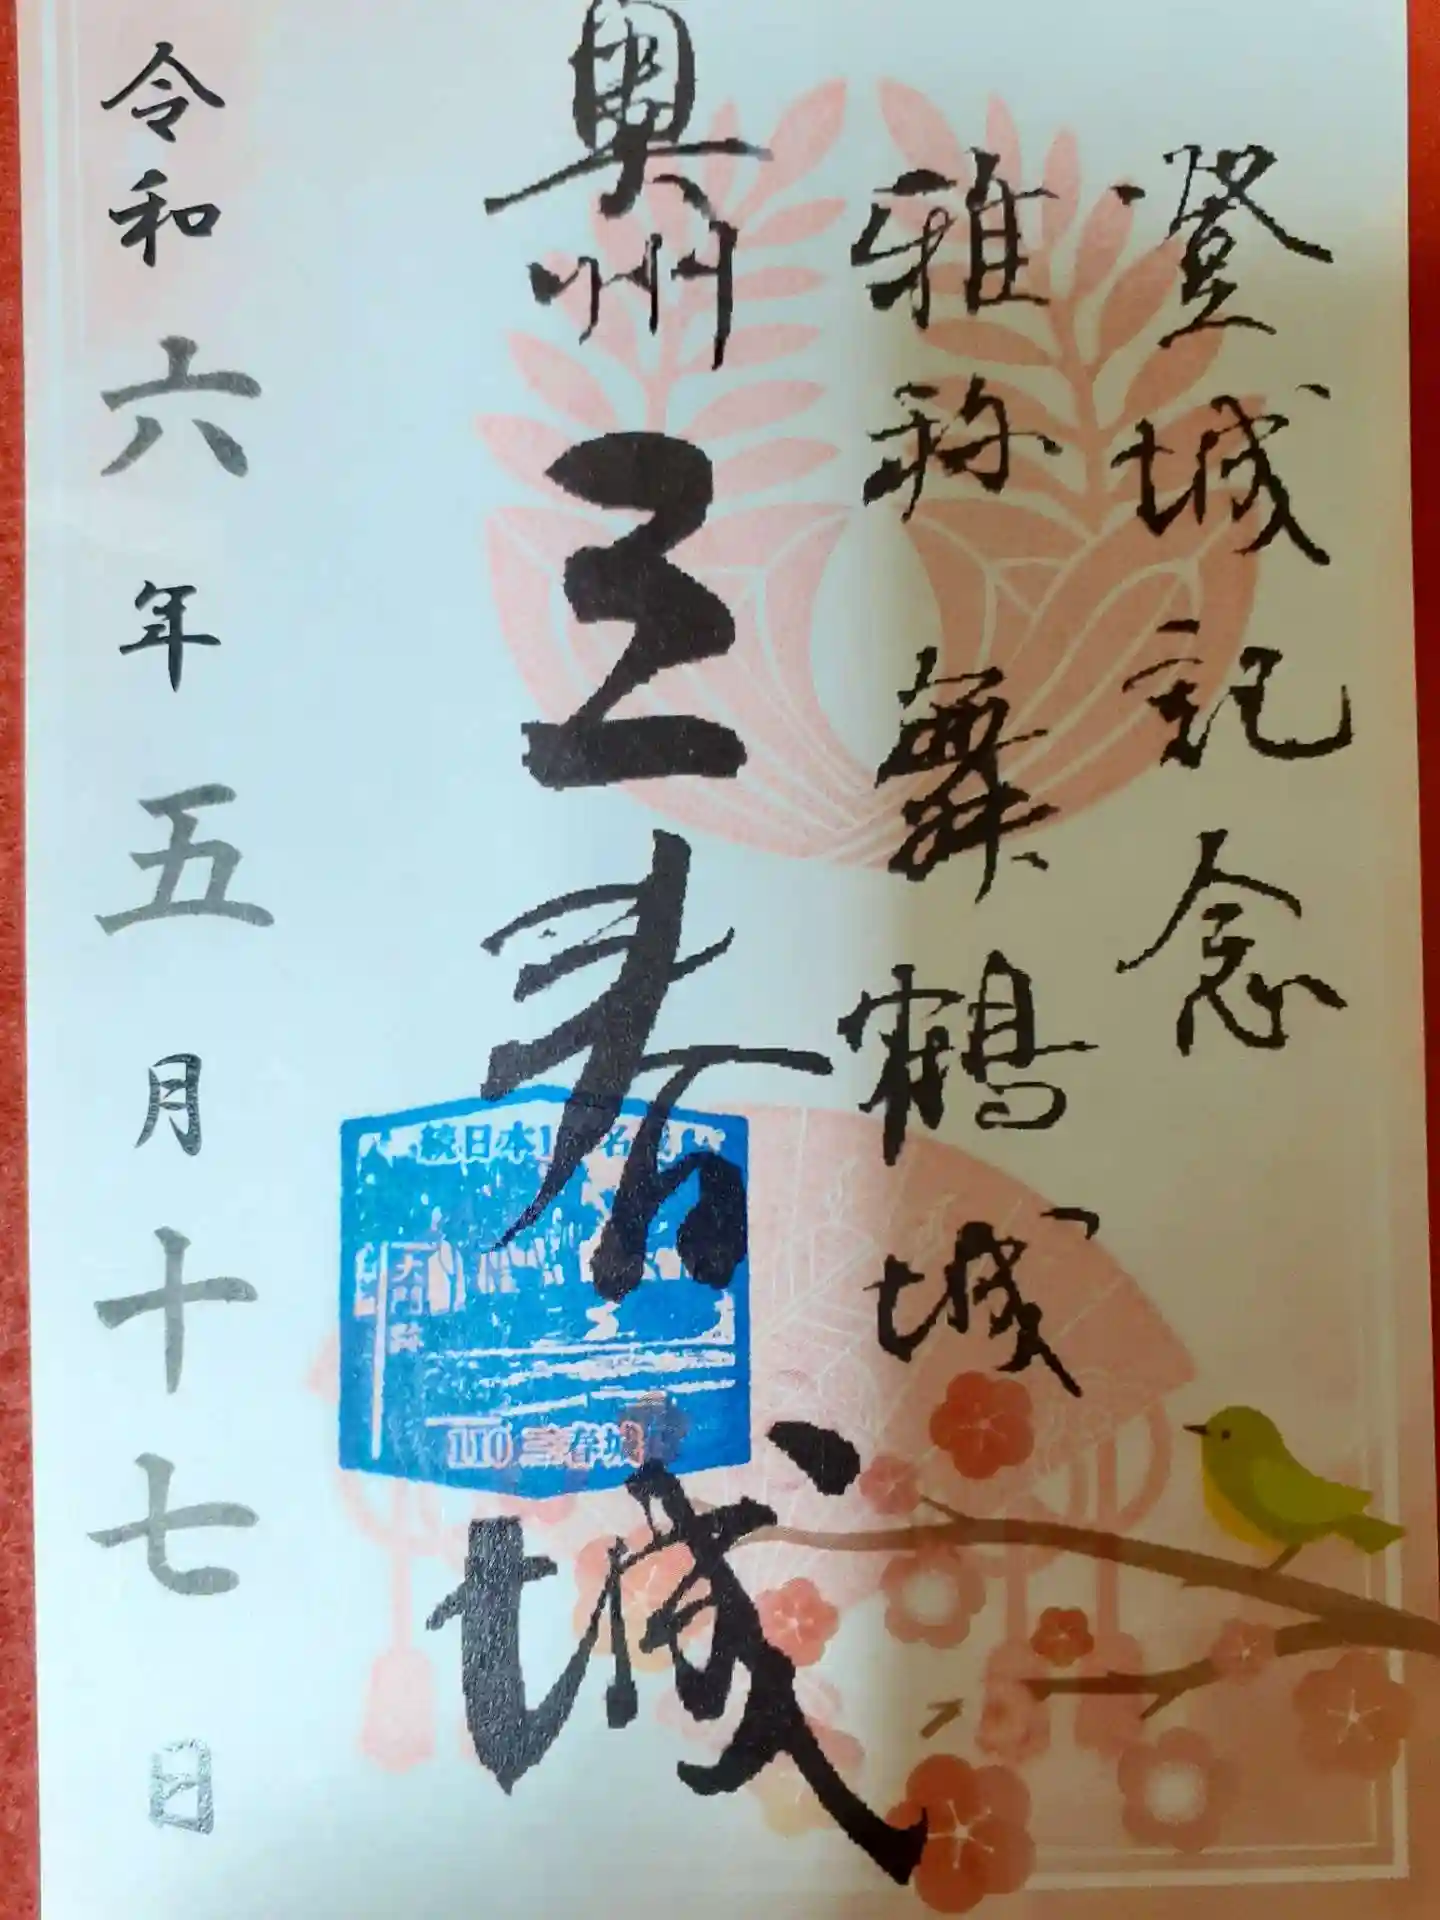 登城記念
雅称 舞鶴城
奥州 三春城
続日本1
名
大門跡
110 三春城
令和六年五月十七日